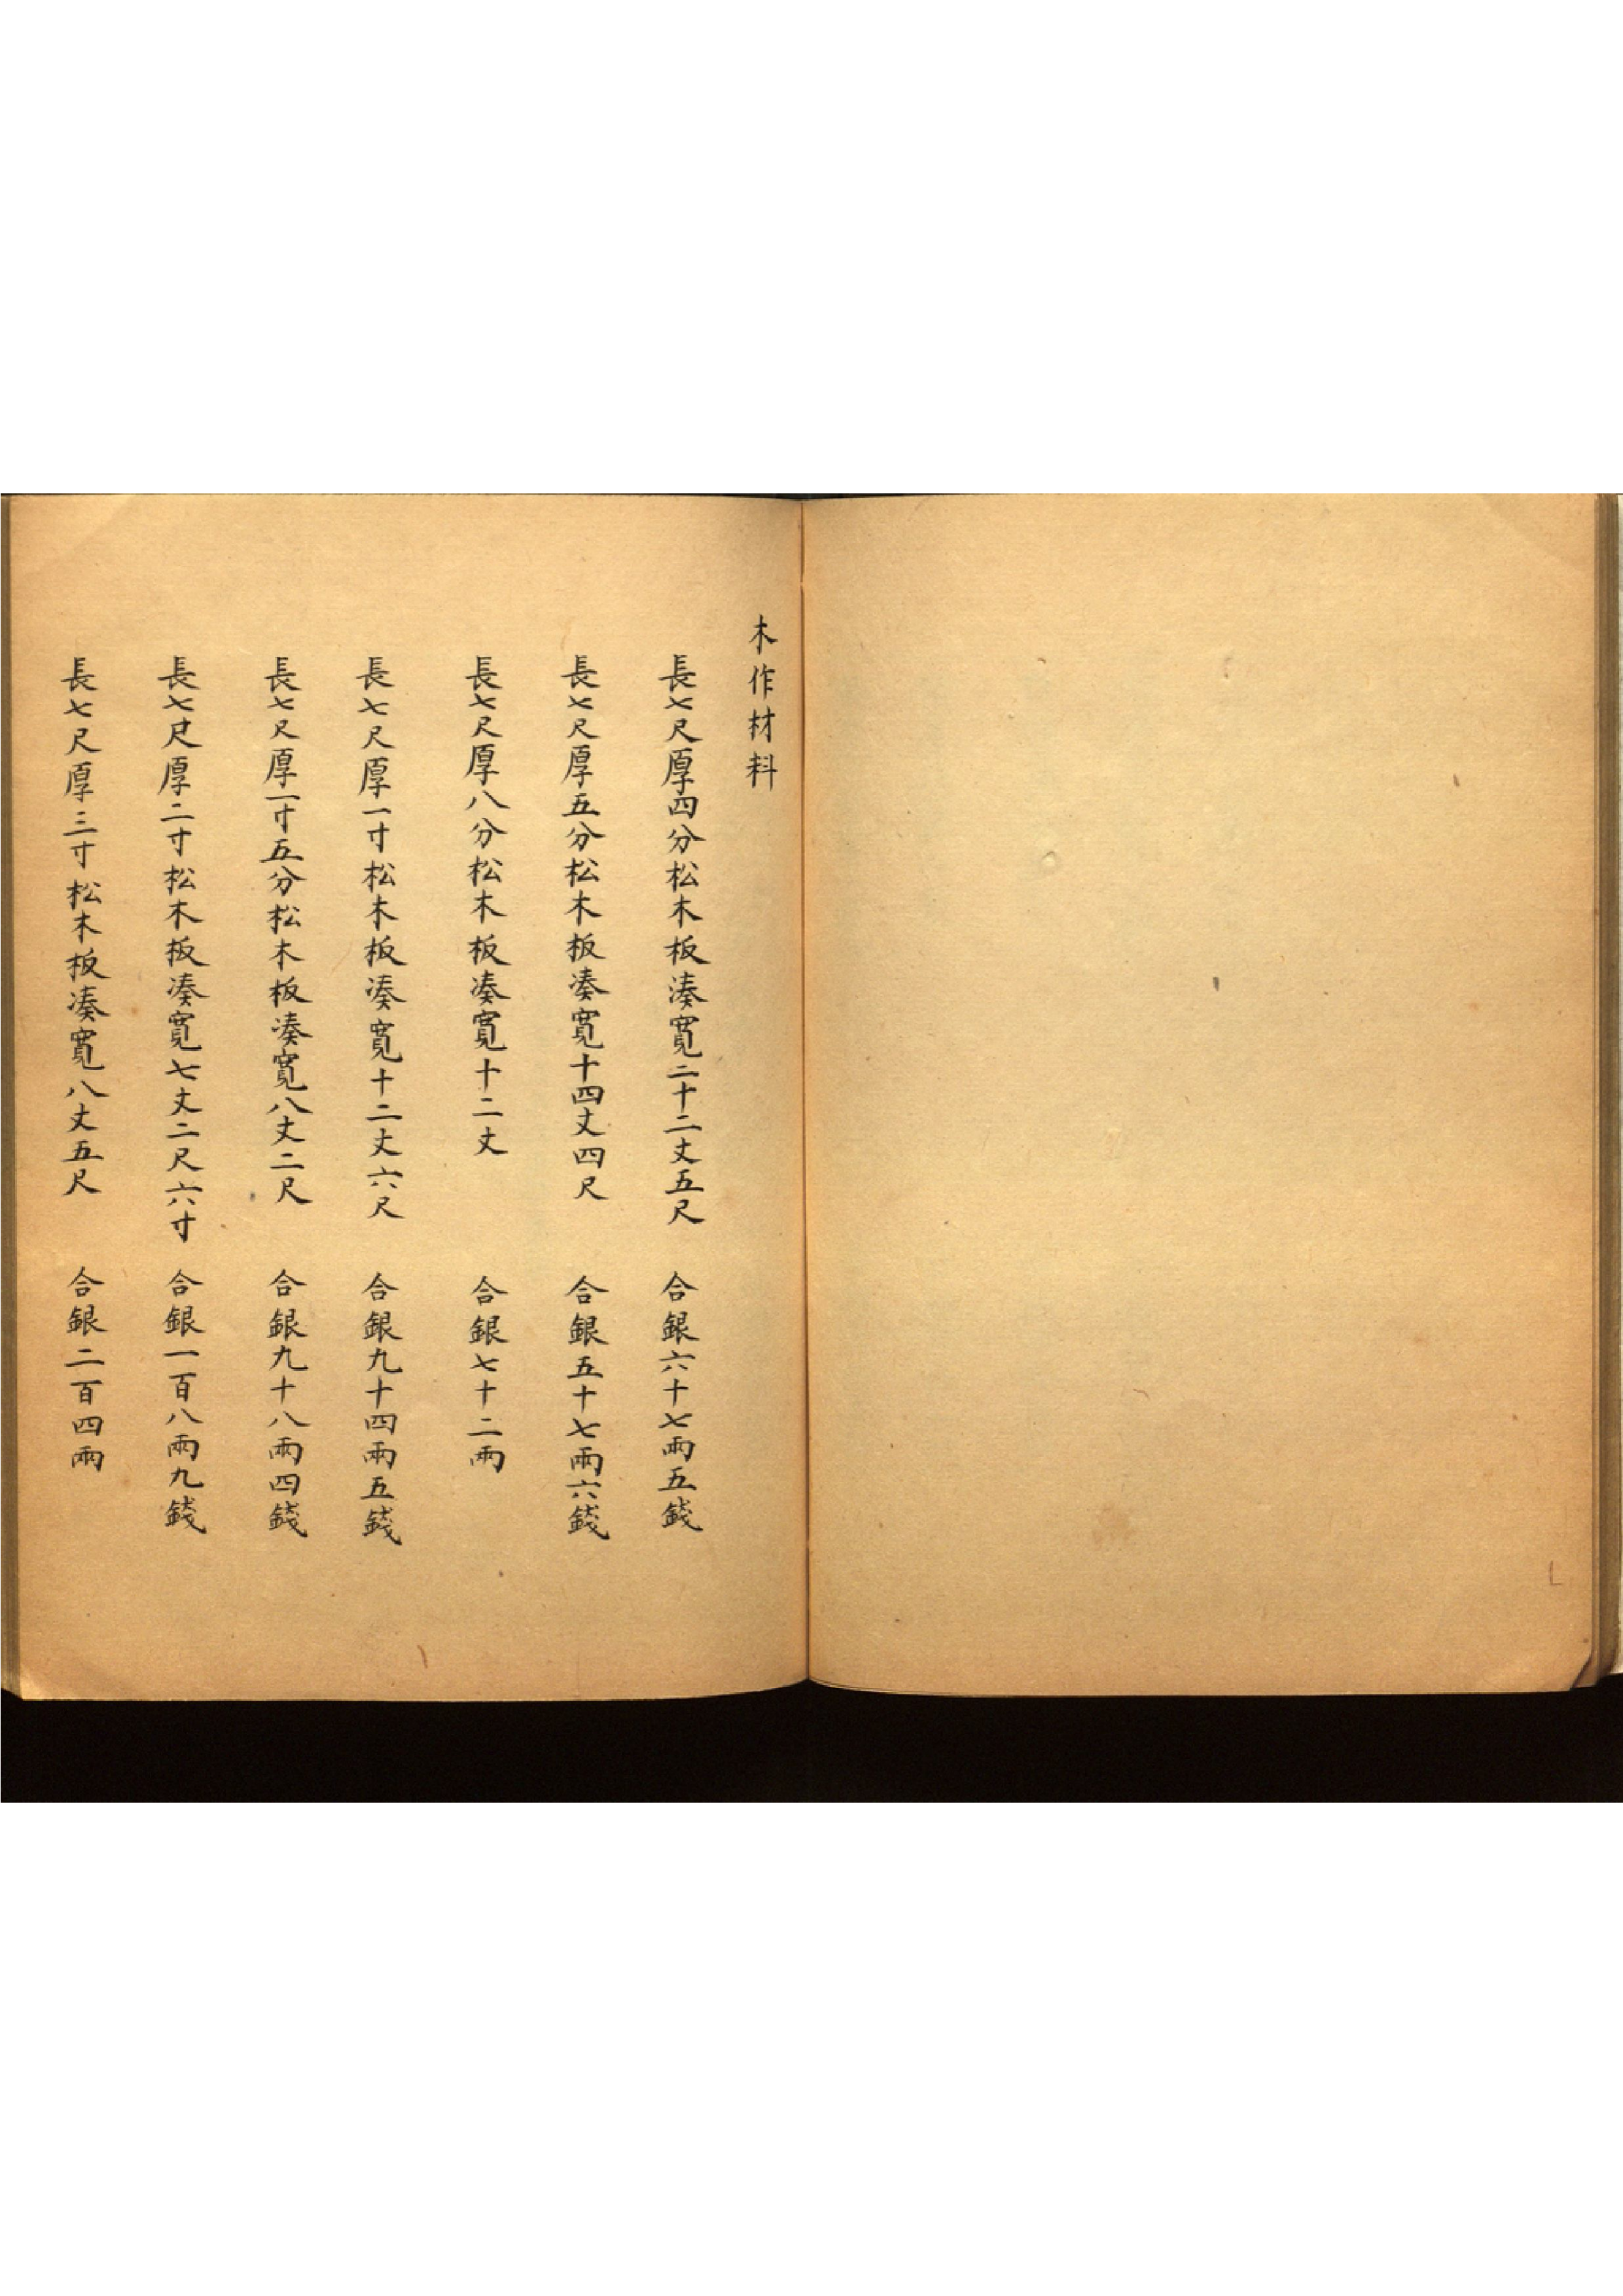 木作材料
長七尺厚四分松木板湊寬二十二丈五尺　合銀六十七兩五錢
長七尺厚五分松木板湊寬十四丈四尺　合銀五十七兩六錢
長七尺厚八分松木板湊寬十二丈　合銀七十二兩
長七尺厚一寸松木板湊寬十二丈六尺　合銀九十四兩五錢
長七尺厚一寸五分松木板湊寬八丈二尺　合銀九十八兩四錢
長七尺厚二寸松木板湊寬七丈二尺六寸　合銀一百八兩九錢
長七尺厚三寸松木板湊寬八丈五尺　合銀二百四兩